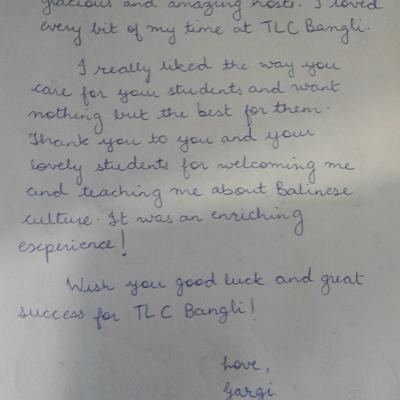 gracious and amazing hosts. I loved
every bit of my time at TLC Bangli.
I really liked the way you
care for your students and want
nothing but the best for them.
Thank you to you and your
lovely students for welcoming me
and teaching me about Balinese
culture. It was an enriching
experience!
Wish you good luck and great
success for TLC Bangli!
Love,
Gargi